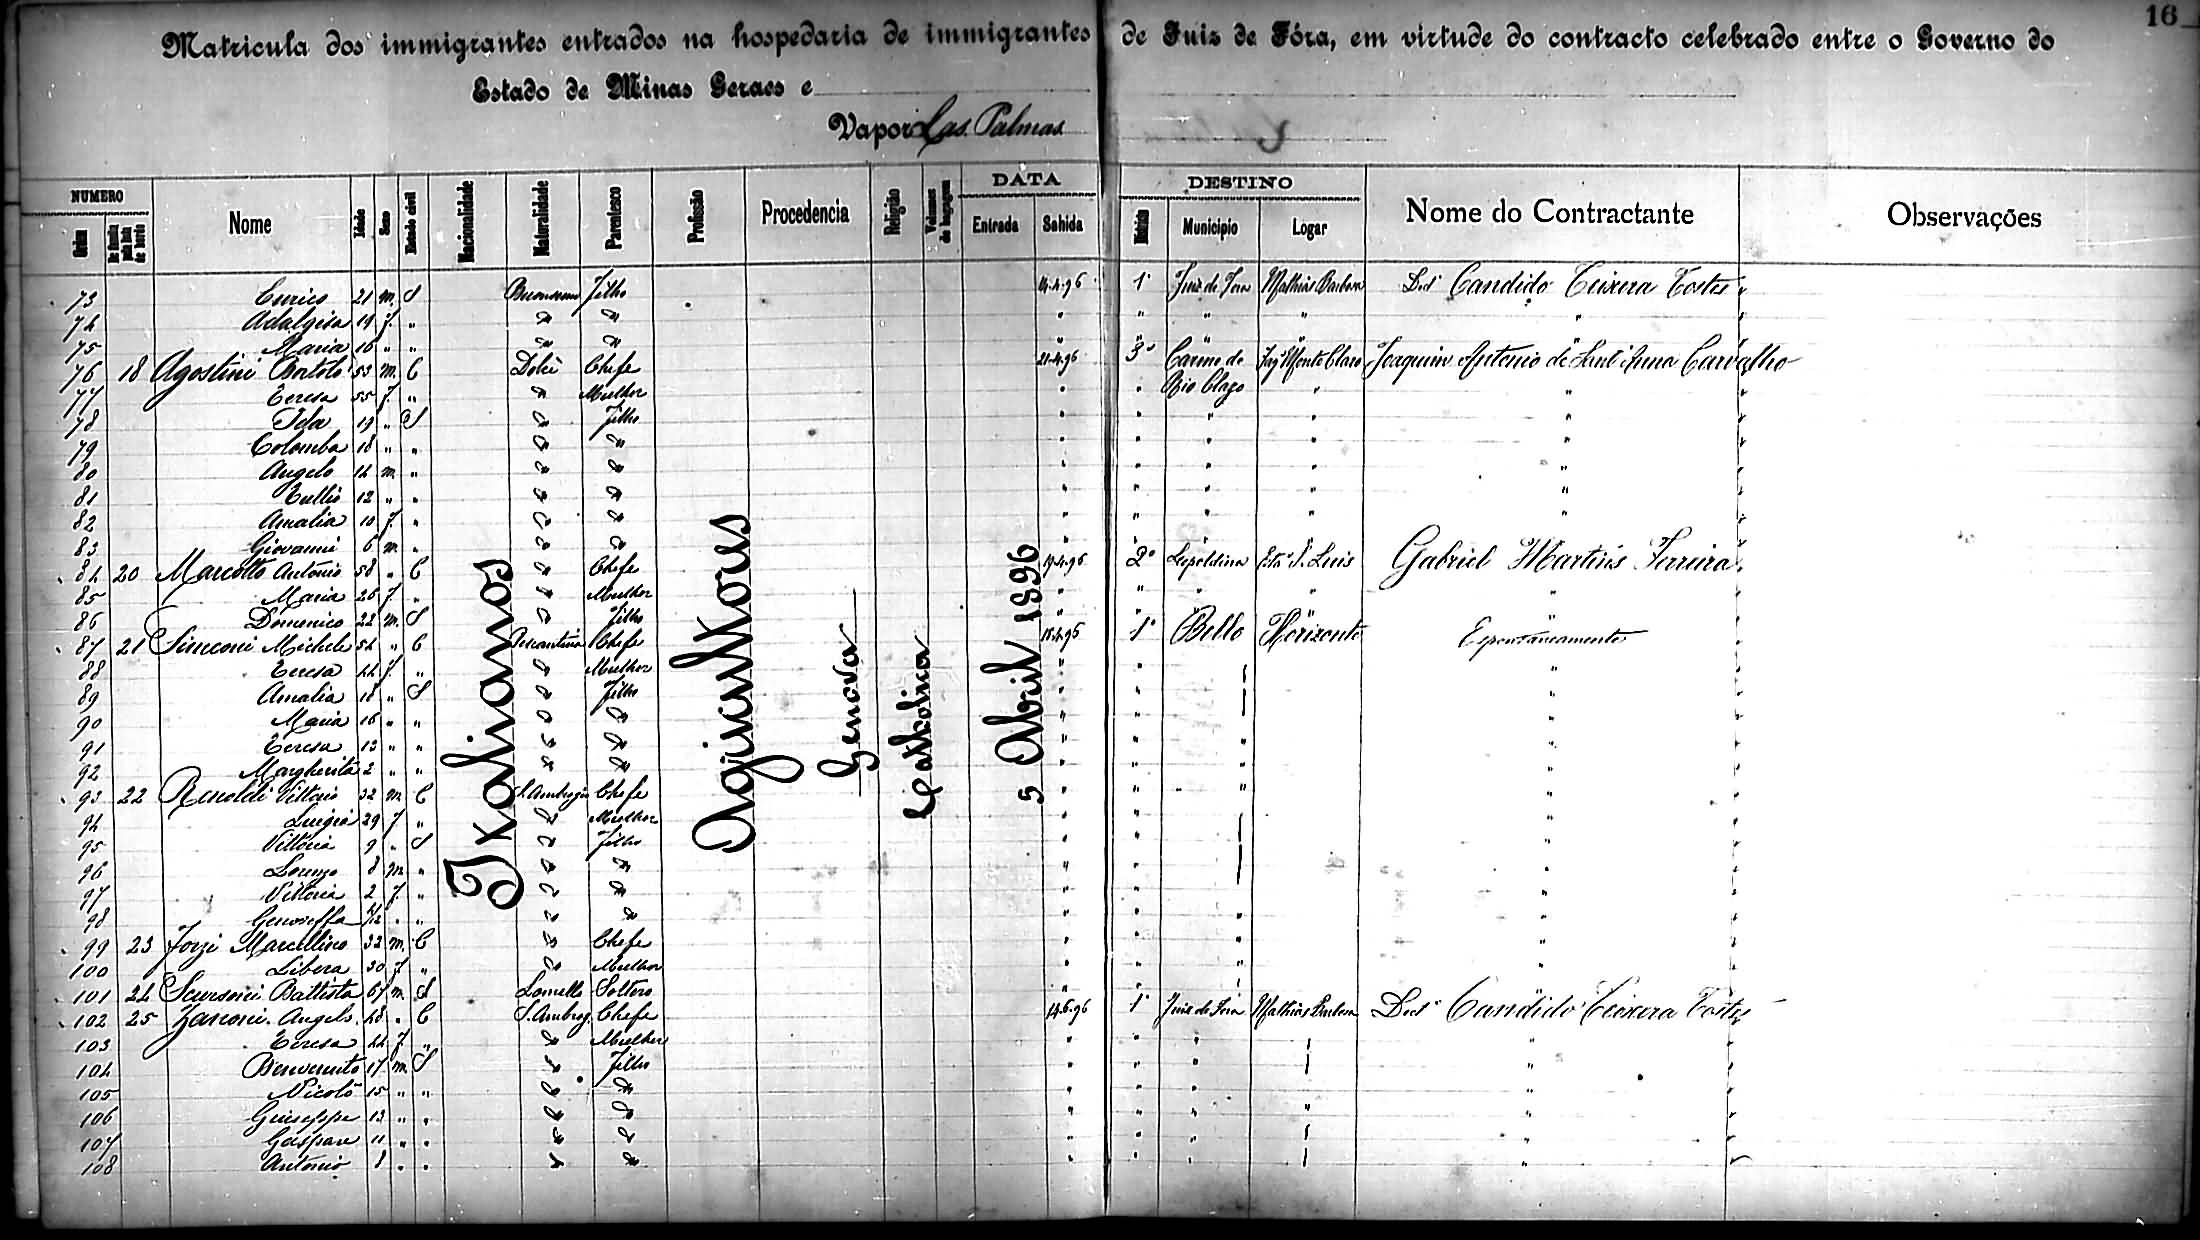 16
Matricula dos immigrantes entrados na hospedaria de immigrantes de Juiz de Fóra, em virtude do contracto celebrado entre o Governo do
Estado de Minas Geraes e
Vapor Las Palmas
NUMERO DATA DESTINO
Ordem Nome Idade Sexo Estado civil Nacionalidade Naturalidade Parentesco Profissão Procedencia Religião Volumes de bagagem Entrada Sahida Districto Municipio Logar Nome do Contractante Observações
Italianos Agricultores Genova Catholica 5 Abril 1896
73 Enrico 21 m. S Filho 14.4.96 1º Juiz de Fora Mathias Barbosa Dor Candido Teixera Tostes "
74 Adalgisa 19 f. " " " " " " " " "
75 Maria 16 " " " "
76 18 Agostini Bortolo 53 m. C Dolcè Chefe 21.4.96 3º Carmo do Fazda Monte Claro Joaquim Antonio de Sant'Anna Carvalho
77 Teresa 55 f. " " Mulher " " Rio Claro " " "
78 Ida 19 " S " Filho " " " " " "
79 Colomba 18 " " " " " " " " " "
80 Angelo 14 m. " " " " " " " " "
81 Tullio 12 " " " " " " " " " "
82 Amalia 10 f. " " " " " " " " "
83 Giovanni 6 m. " " " " " " "
84 20 Marcotto Antonio 58 " C " Chefe 19.4.96 2º Leopoldina Estº S. Luis Gabriel Martins Ferreira
85 Maria 26 f. " " Mulher " " " " " "
86 Domenico 22 m. S " Filho " " "
87 21 Simeoni Michele 54 " C Chefe 18.4.96 1º Bello Horizonte Espontaneamente
88 Teresa 44 f. " " Mulher " " " "
89 Amalia 18 " S " Filho " " " "
90 Maria 16 " " " " " " " "
91 Teresa 13 " " " " " " " " "
92 Margherita 2 " " " " " " " " "
93 22 Vittorio 32 m. C S. Ambrogio Chefe " " " " " "
94 Luigia 29 f " " Mulher " " " "
95 Vittoria 9 " S " Filho " " " "
96 Lorenzo 8 m " " " " " " "
97 Vittoria 2 f. " " " " " " "
98 Genoveffa " " " " " " " " "
99 23 Forzi Marcellino 32 m. C " Chefe " " " " "
100 Libera 30 f " " Mulher " " " " "
101 24 Battista 67 m. S Lomello Soltero " " " "
102 25 Zanoni Angelo 48 " C S. Ambrog. Chefe 14.6.96 1º Juiz de Fora Mathias Barbosa Dor Candido Teixera Tostes
103 Teresa 44 f. " " Mulher " " " " "
104 Benvenuto 17 m. S " Filho " " " "
105 Nicolò 15 " " " " " " " " " "
106 Giuseppe 13 " " " " " " " " " "
107 Gaspare 11 " " " " " " " " "
108 Antonio 8 " " " " " " " " "